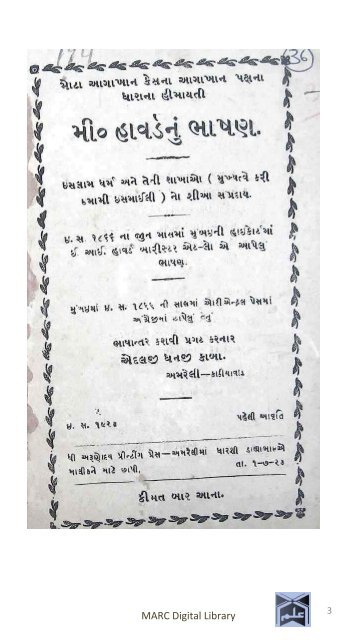 174
36
મોટા આગાખાન કેસના આગાખાન પક્ષના
ધારાના હીમાયતી
મી૦ હાવર્ડનું ભાષણ.
ઇસલામ ધર્મ અને તેની શાખાઓ ( મુખ્યત્વે કરી
ઇમામી ઇસમાઈલી ) નો શીઆ સંપ્રદાય.
ઇ. સ. ૧૮૬૬ ના જુન માસમાં મુંબઇની હાઇકોર્ટમાં
ઈ આઈ. હાવર્ડ બારીસ્ટર એટ-લો એ આપેલું
ભાષણ.
મુંબઇમાં ઇ. સ. ૧૮૬૬ ની સાલમાં ઓરીએન્ટલ પ્રેસમાં
અંગ્રેજીમાં છાપેલું તેનું
ભાષાન્તર કરાવી પ્રગટ કરનાર
એદલજી ધનજી કાબા.
અમરેલી—કાઠીયાવાડ
ઇ. સ. ૧૯૨૩
પહેલી આવૃતિ
ધી અરૂણોદય પ્રીન્ટીંગ પ્રેસ—અમરેલીમાં ધારશી ડાહ્યાભાઇએ
માલીકને માટે છાપી.
તા. ૧-૭-૨૩
કીમત બાર આના.
MARC Digital Library
علم
3